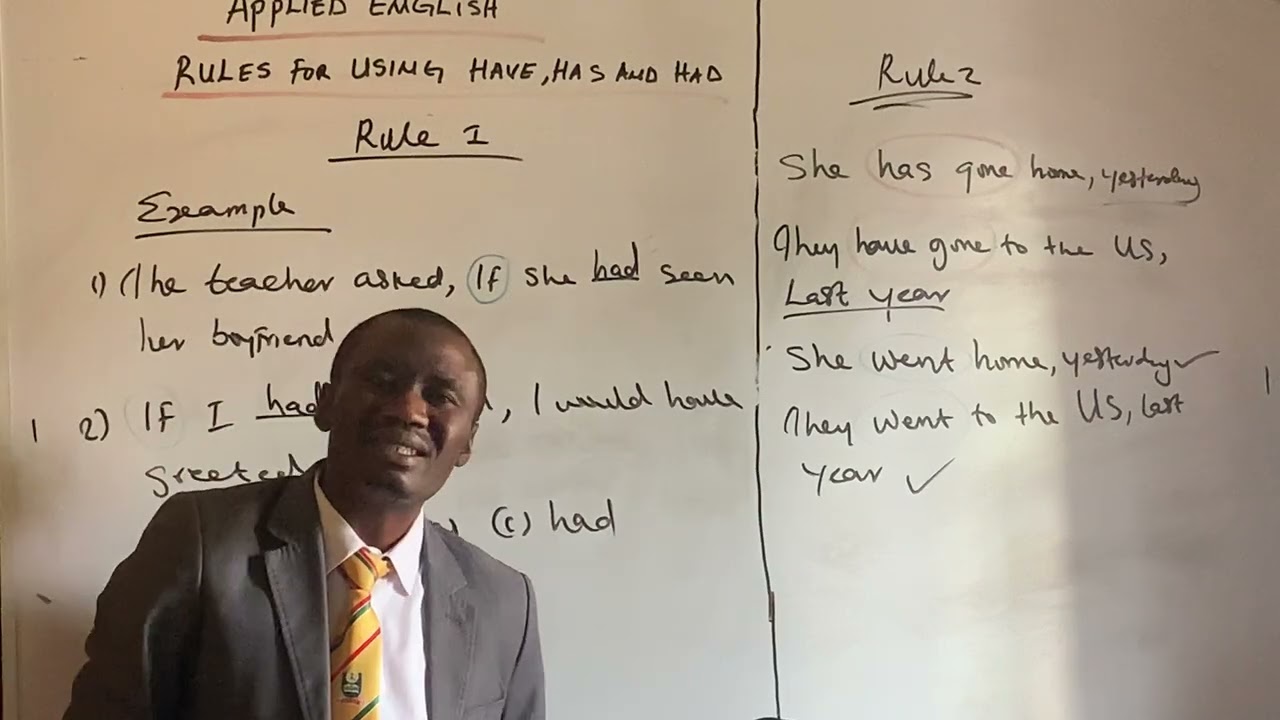 APPLIED ENGLISH
RULES FOR USING HAVE, HAS AND HAD
Rule 1
Example
1) The teacher asked, If she had seen
her boyfriend
2) If I had , I would have
greeted
(c) had
Rule 2
She has gone home, yesterday
They have gone to the US,
Last year
She went home, yesterday ✓
They went to the US, last
year ✓